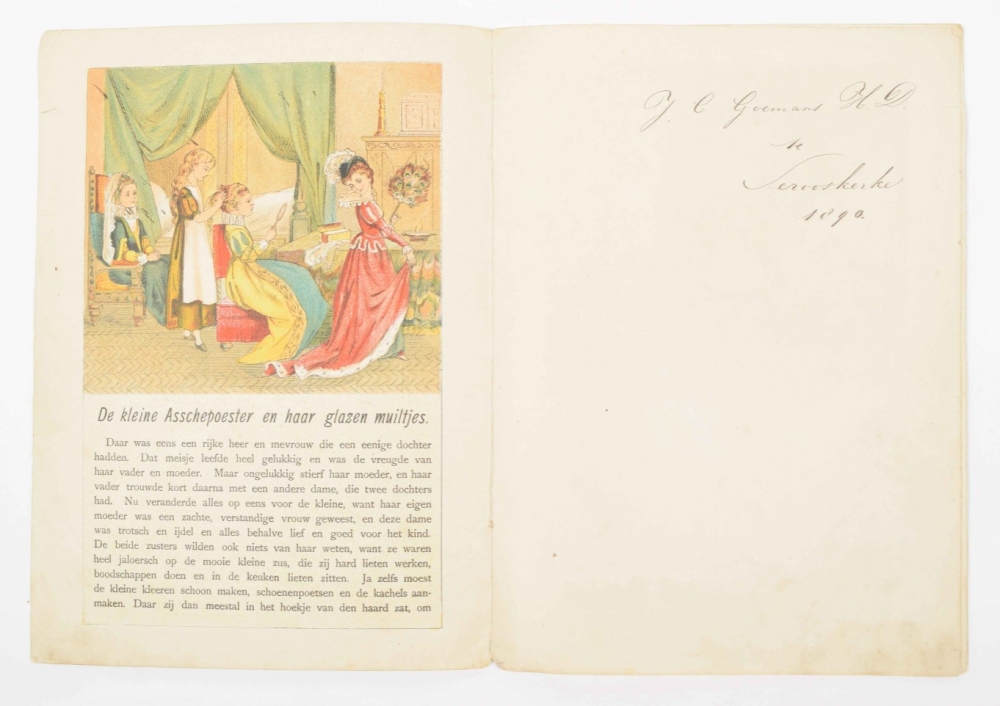 De kleine Asschepoester en haar glazen muiltjes.
Daar was eens een rijke heer en mevrouw die een eenige dochter
hadden. Dat meisje leefde heel gelukkig en was de vreugde van
haar vader en moeder. Maar ongelukkig stierf haar moeder, en haar
vader trouwde kort daarna met een andere dame, die twee dochters
had. Nu veranderde alles op eens voor de kleine, want haar eigen
moeder was een zachte, verstandige vrouw geweest, en deze dame
was trotsch en ijdel en alles behalve lief en goed voor het kind.
De beide zusters wilden ook niets van haar weten, want ze waren
heel jaloersch op de mooie kleine zus, die zij hard lieten werken,
boodschappen doen en in de keuken lieten zitten. Ja zelfs moest
de kleine kleeren schoon maken, schoenenpoetsen en de kachels aan-
maken. Daar zij dan meestal in het hoekje van den haard zat, om
J. C Goemans H.D.
te
Serooskerke
1890.